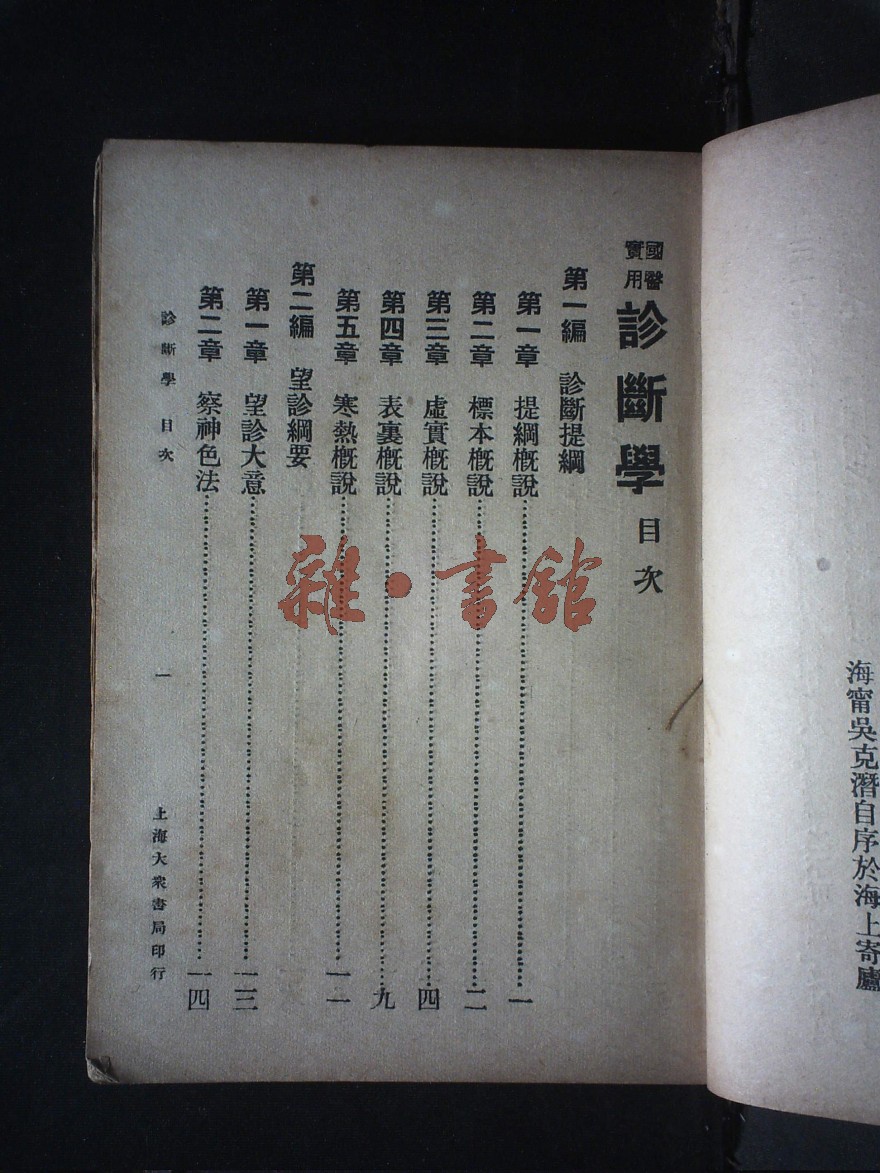 海甯吳克潛自序於海上寄廬
國醫
實用
診斷學 目次
第一編 診斷提綱
第一章 提綱槪說 一
第二章 標本槪說 二
第三章 虛實槪說 四
第四章 表裏槪說 九
第五章 寒熱槪說 一一
第二編 望診綱要
第一章 望診大意 一三
第二章 察神色法 一四
診斷學 目次 一 上海大衆書局印行
雜·書館